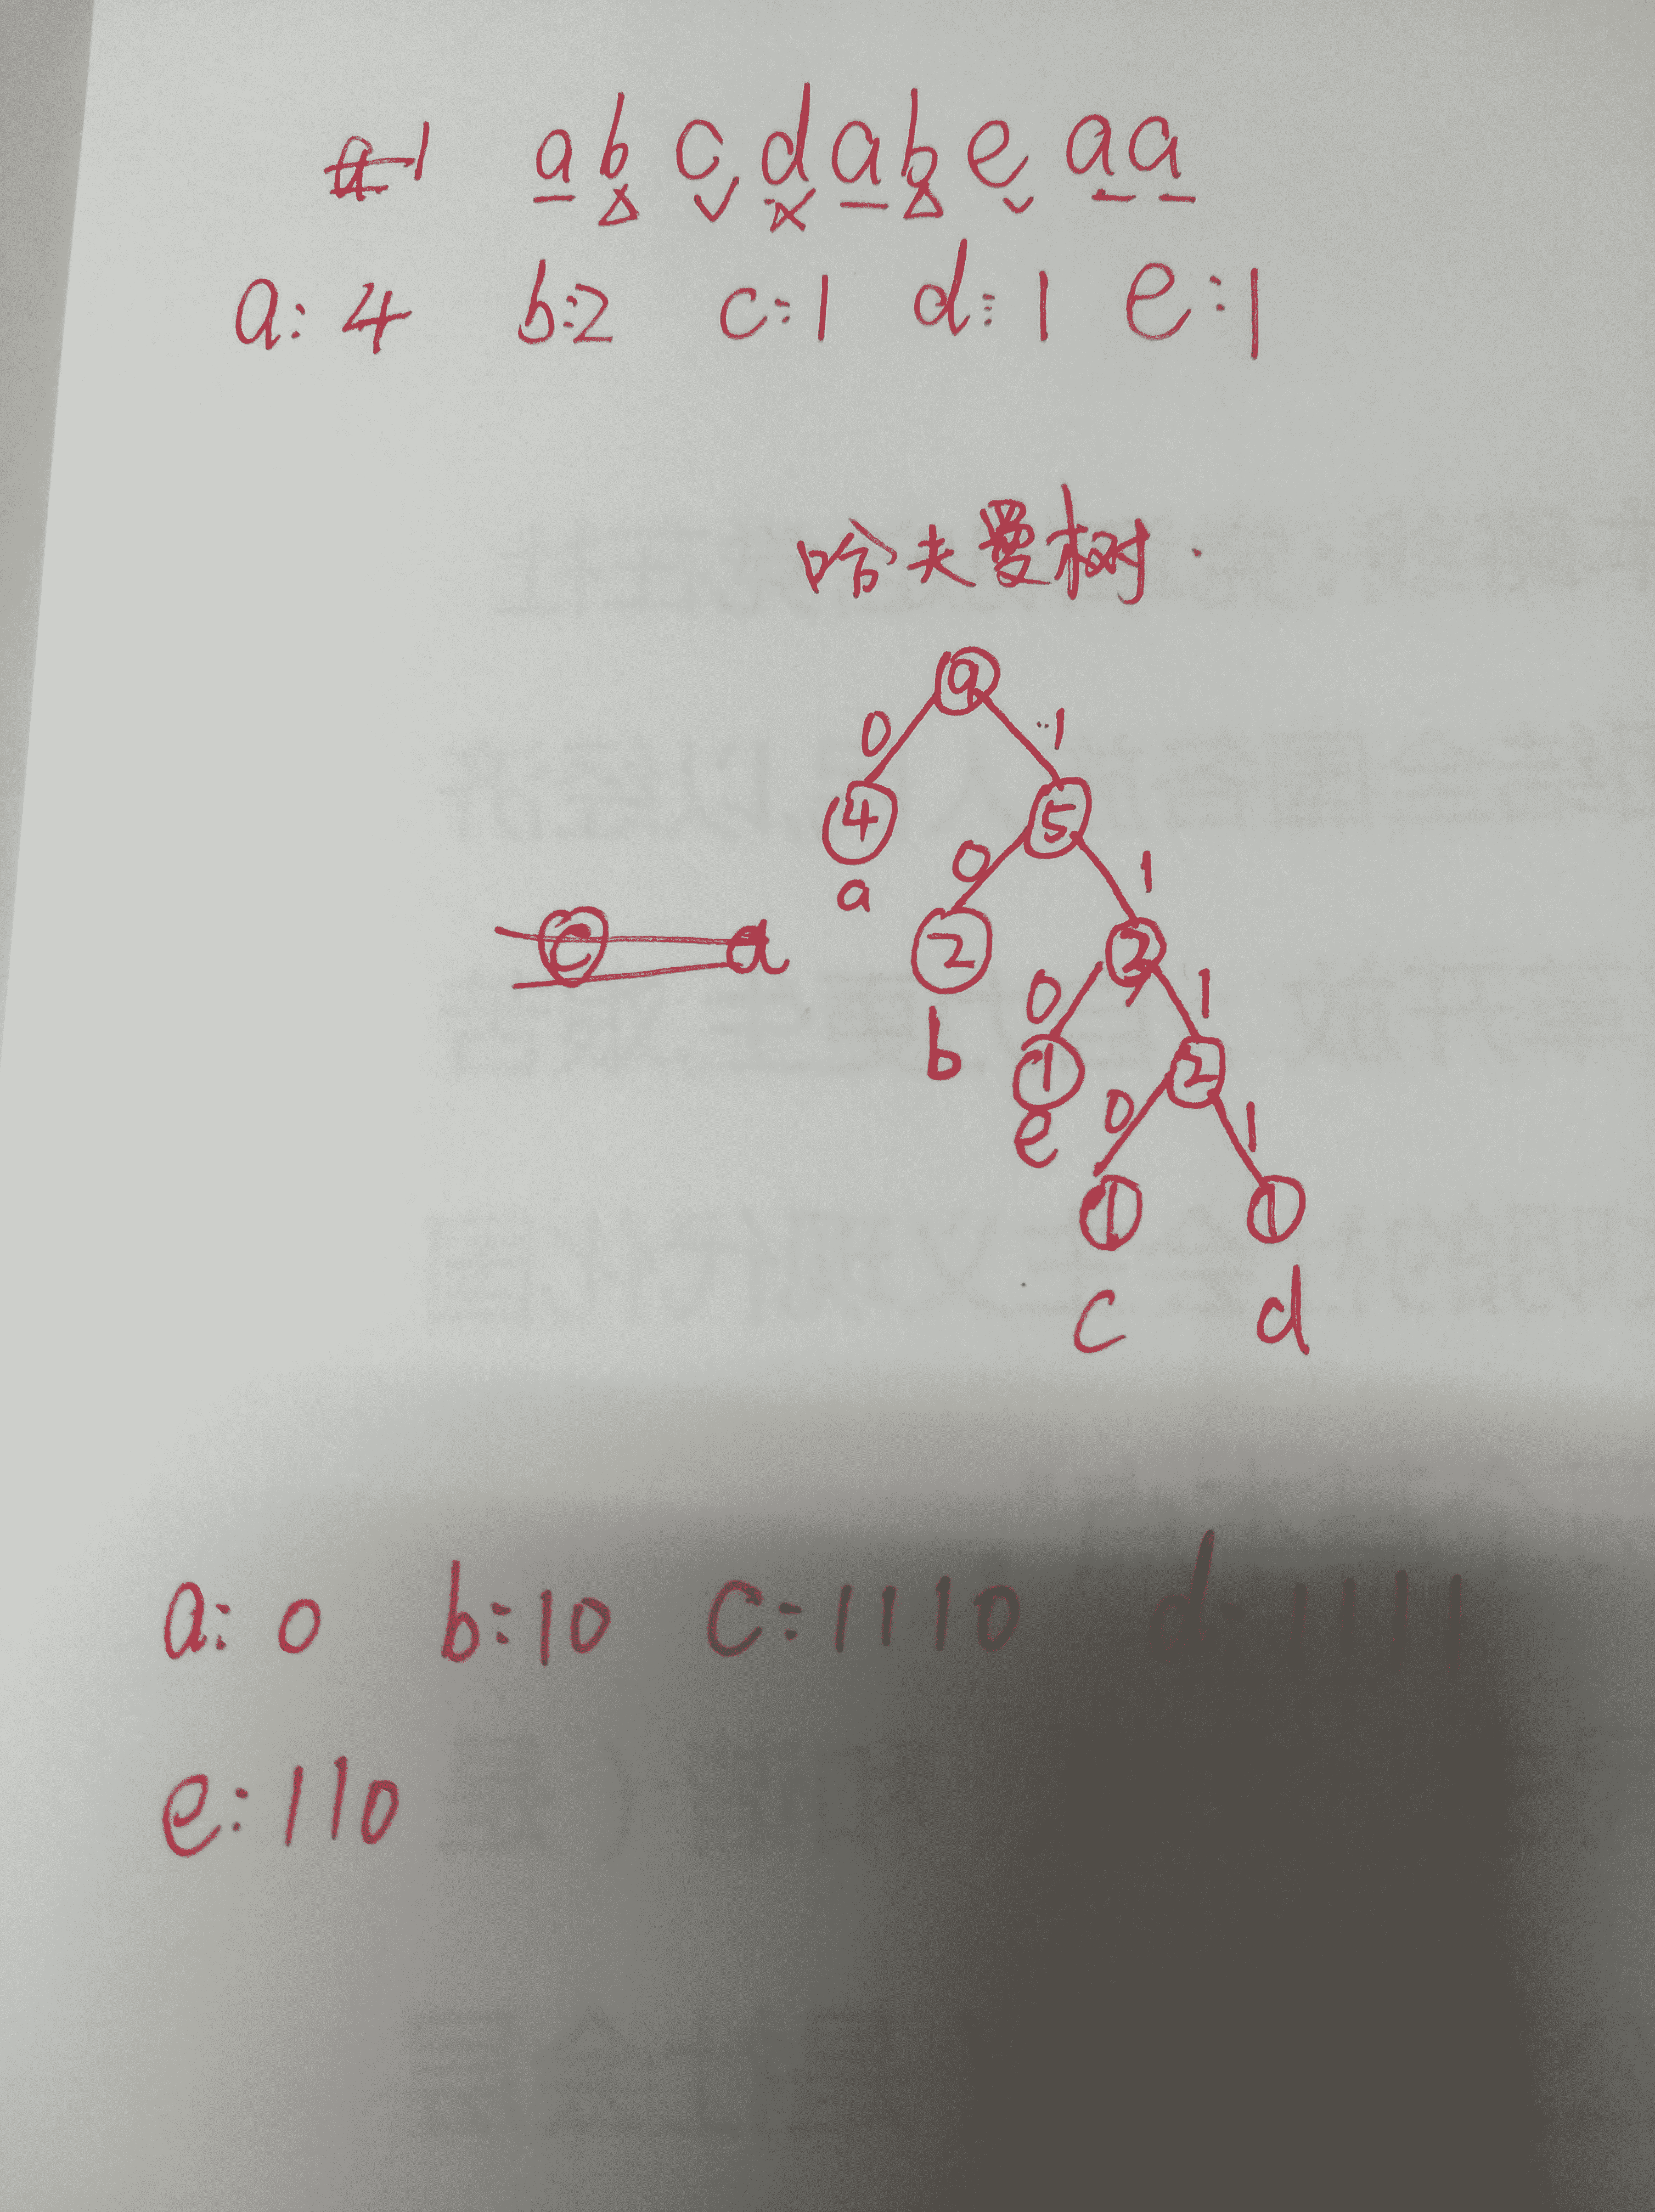 a b c d a b e a a
a: 4 b:2 c:1 d:1 e:1
哈夫曼树
9
0 1
4 5
a 0 1
2 3
b 0 1
1 2
e 0 1
1 1
c d
a: 0 b:10 c:1110 d:1111
e:110